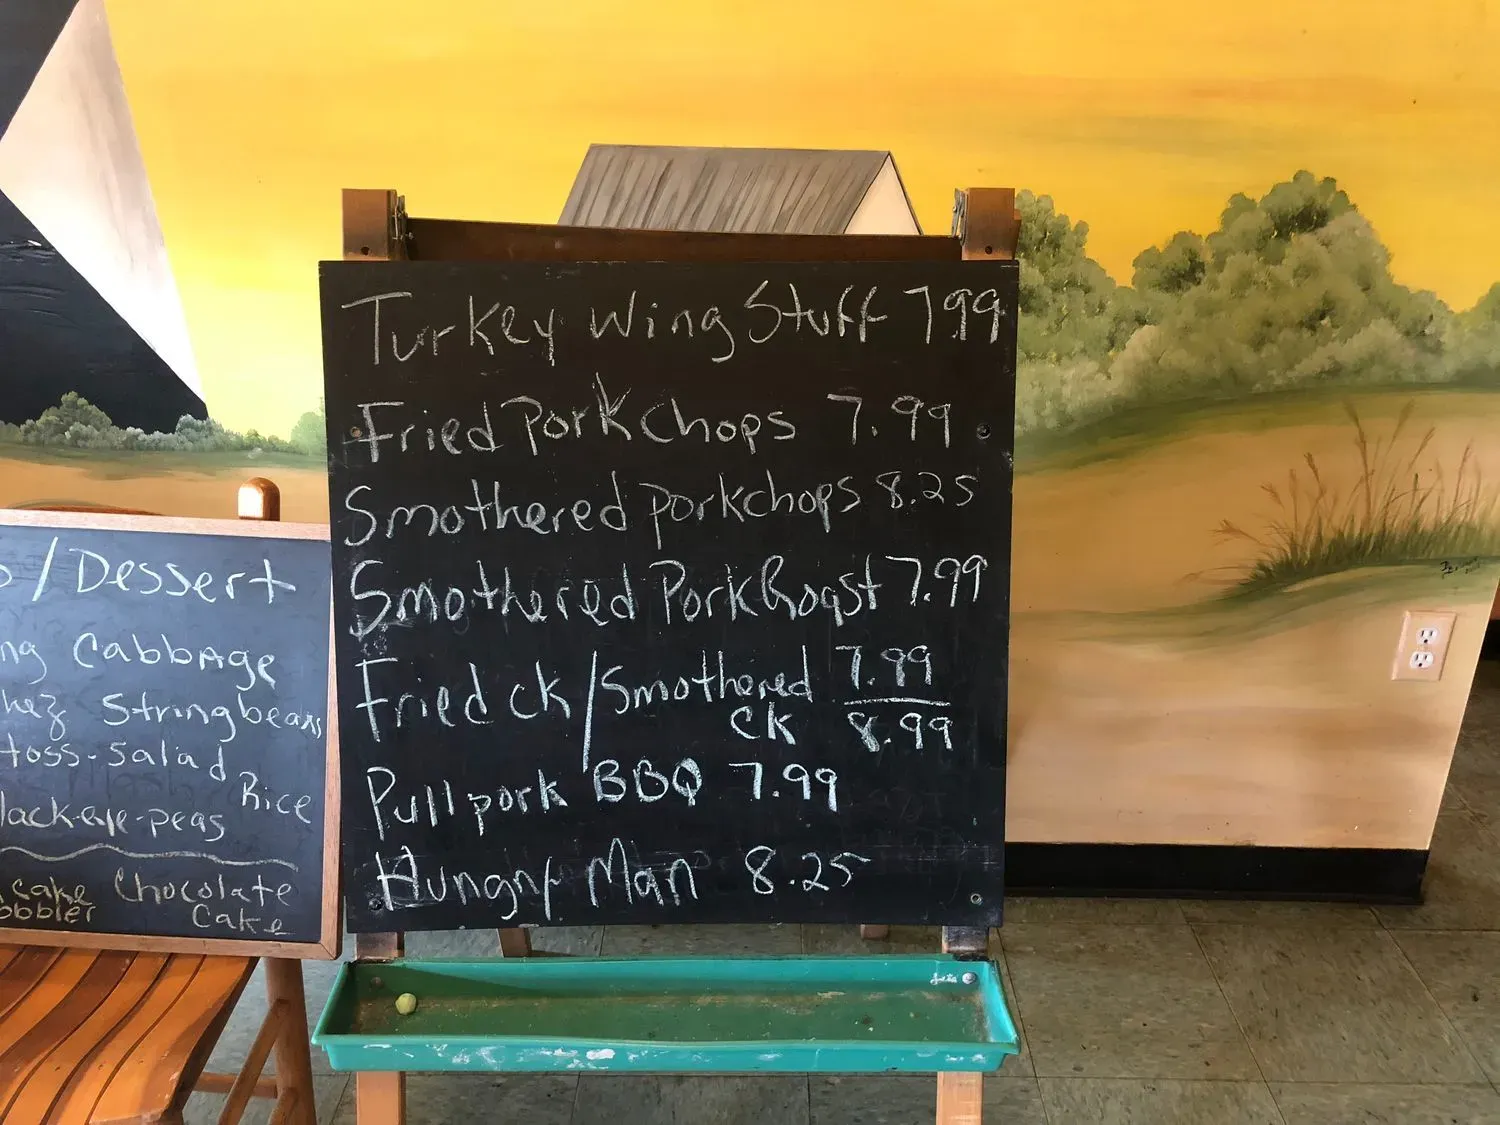 Turkey Wing Stuff 7 99
Fried Pork Chops 7.99
Smothered porkchops 8.25
Smothered Pork Roast 7.99
Fried ck / Smothered ck 7.99 / 8.99
Pull pork BBQ 7.99
Hungry Man 8.25
/Dessert
Cabbage
Stringbeans
toss-salad
Rice
lack-eye-peas
Cake Chocolate
obbler Cake